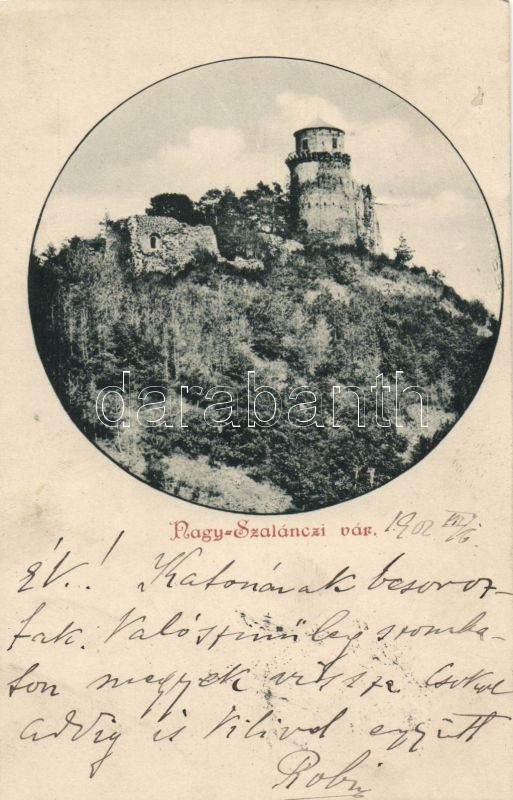 darabanth
Nagy-Szalánczi vár.
1902 VIII/6.
ÉV.! Katonának besoroz-
tak. Valószinüleg szomba-
ton megyek vissza Csókol
addig is Vilivel együtt
Robi